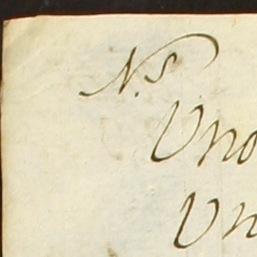 N.s
Uno
Un